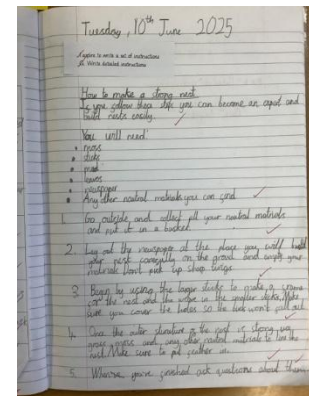 Tuesday, 10th June 2025
I aspire to write a set of instructions
Write detailed instructions
How to make a strong nest
If you follow these steps you can become an expert and
build nests easily.
You will need:
moss
sticks
mud
leaves
newspaper
Any other natural materials you can find
1. Go outside and collect all your natural materials
and put it in a bucket.
2. Lay out the newspaper at the place you will build
your nest carefully on the ground and empty your
materials. Don't pick up sharp twigs.
3. Begin by using the larger sticks to make a
for the nest and the in the smaller sticks. Make
sure you cover the holes so the won't fall out
4. Once the outer structure of the nest is strong, use
grass, moss and any other natural materials to line the
nest. Make sure to put feather in.
5. you've finished ask questions about them